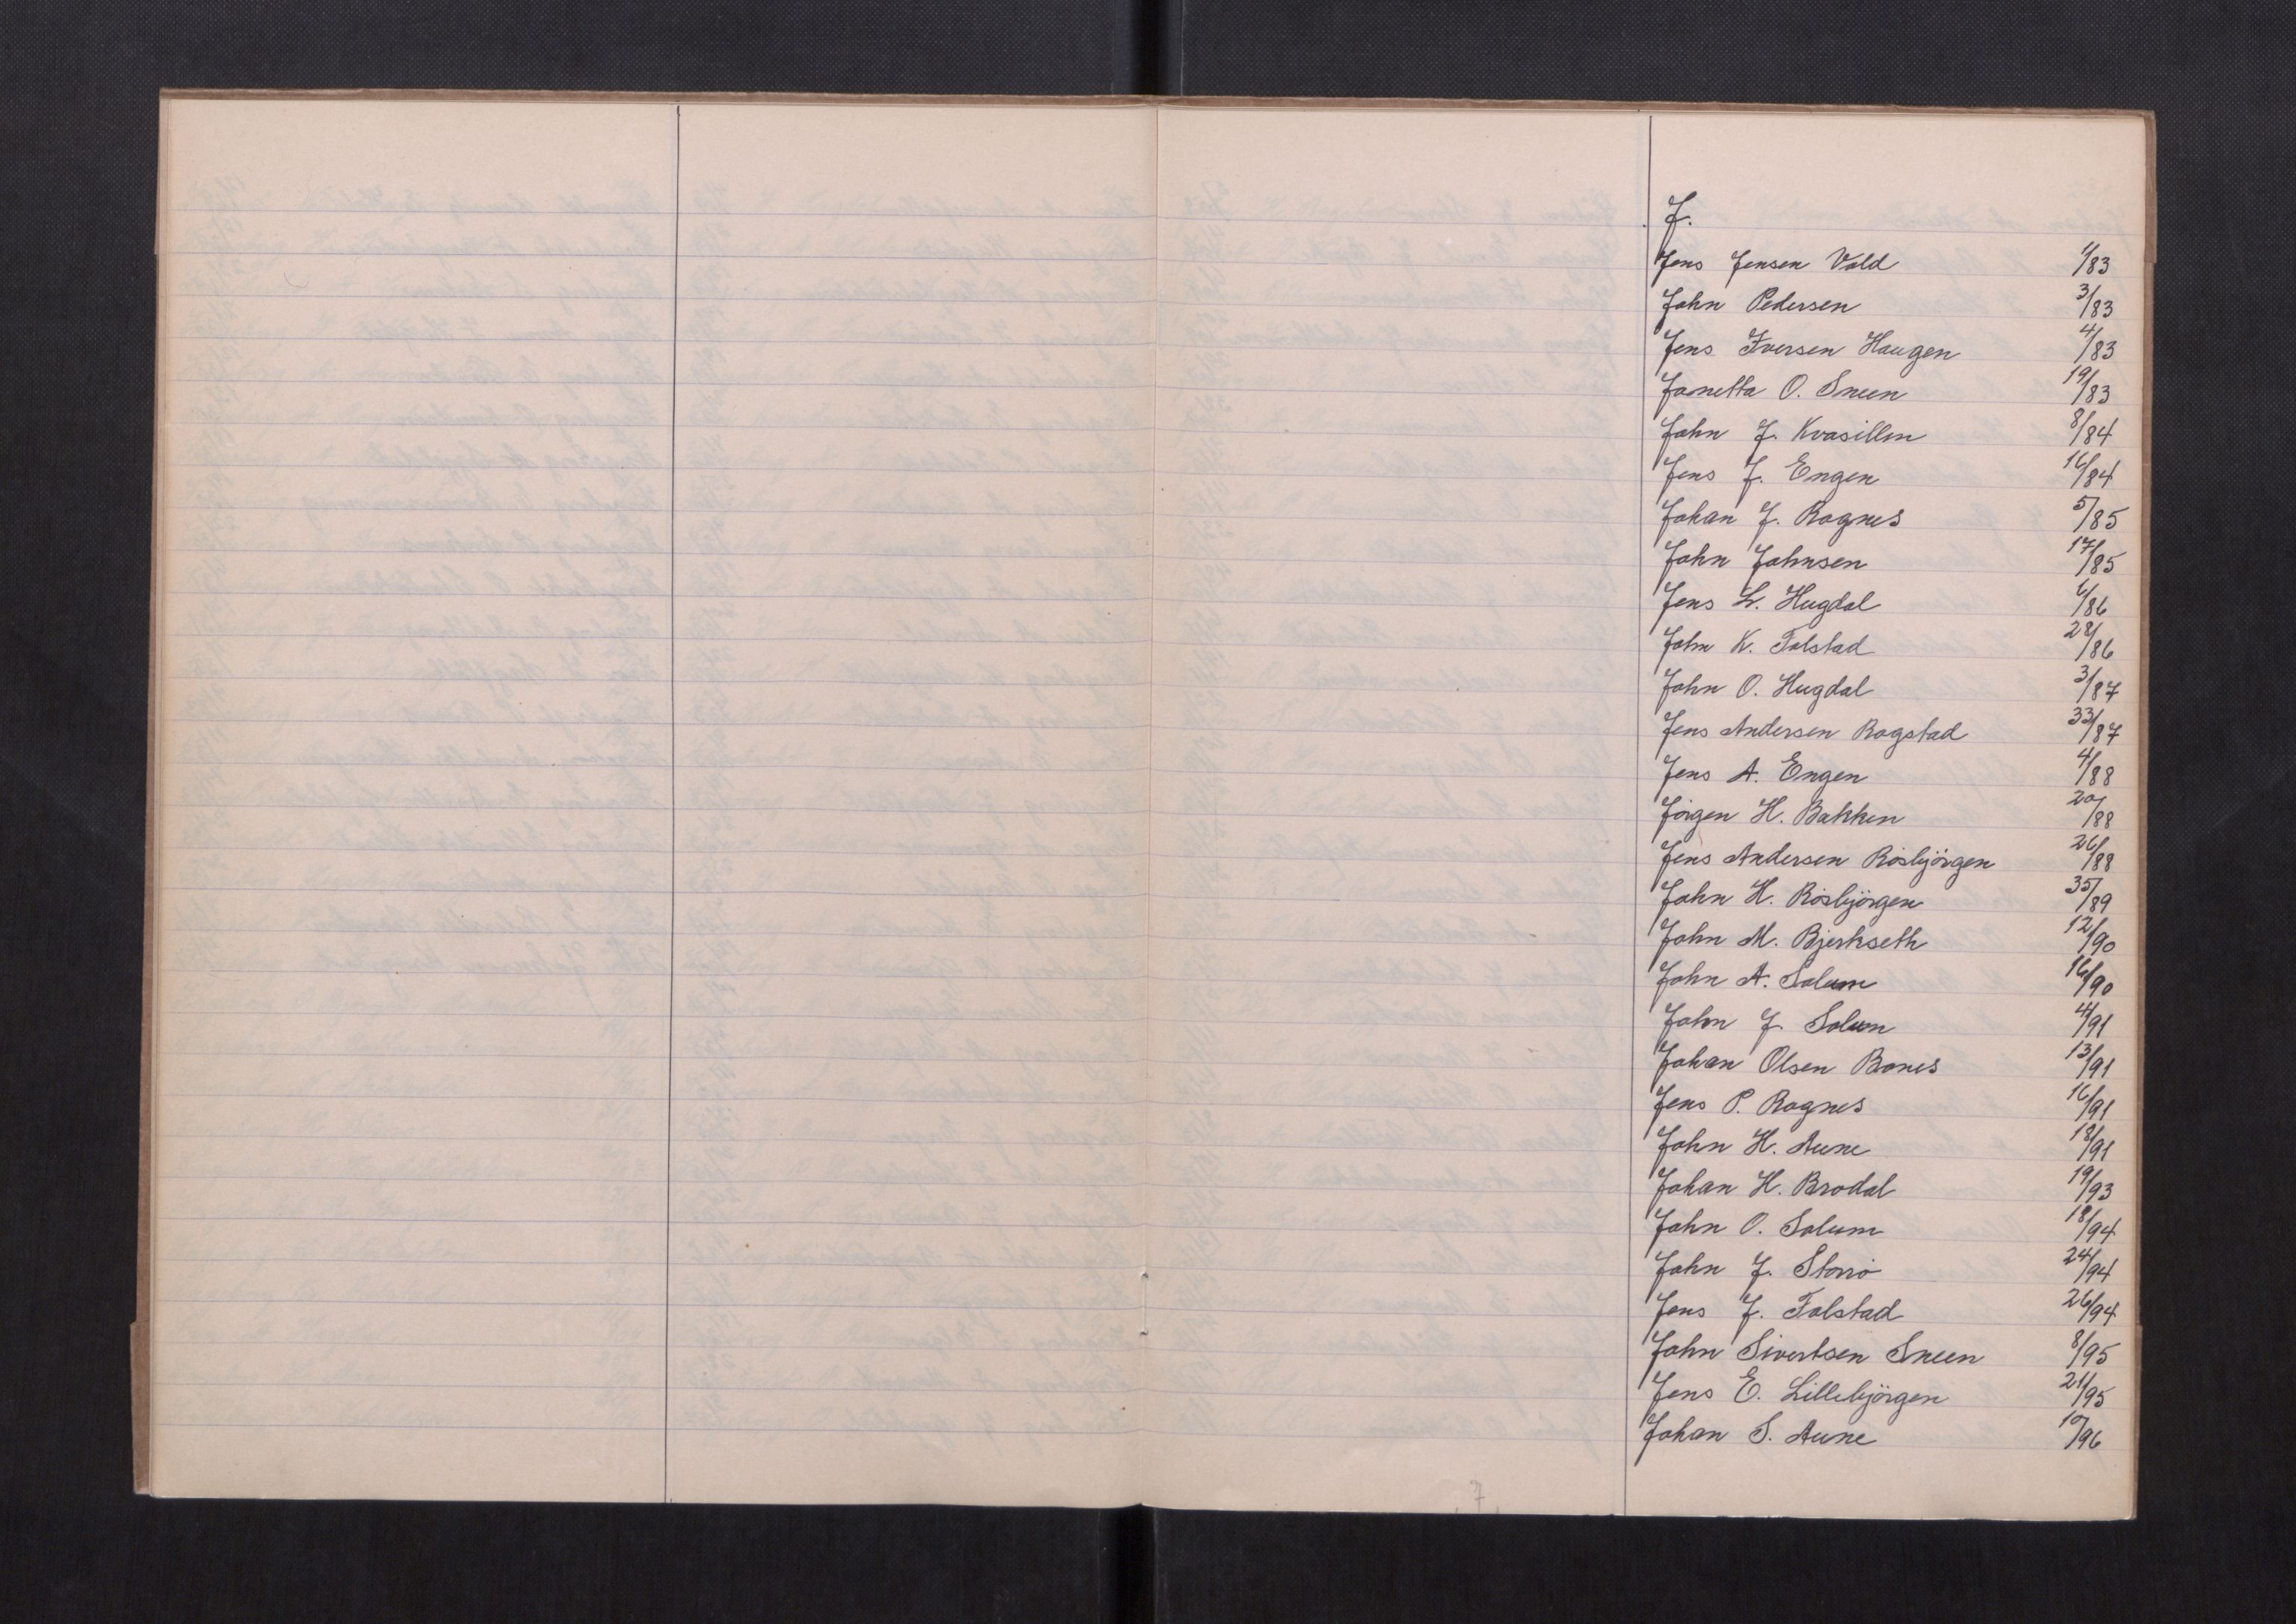 J.
Jens Jensen Vold 1/83
John Pedersen 3/83
Jens Iversen Haugen 4/83
Janetta O. Sneen 19/83
John J. Kvasillen 8/84
Jens J. Engen 16/84
Johan J. Rognes 5/85
John Johnsen 17/85
Jens L. Hugdal 6/86
John K. Folstad 28/86
John O. Hugdal 3/87
Jens Andersen Rogstad 33/87
Jens A. Engen 4/88
Jörgen H. Bakken 20/88
Jens Andersen Rösbjörgen 26/88
John H. Rösbjörgen 35/89
John M. Bjerkseth 12/90
John A. Solum 16/90
John J. Solum 4/91
Johan Olsen Bones 13/91
Jens P. Rognes 16/91
John H. Aune 18/91
Johan H. Brodal 19/93
John O. Solum 18/94
John J. Storrö 24/94
Jens J. Folstad 26/94
John Sivertsen Sneen 8/95
Jens E. Lillebjörgen 21/95
Johan S. Aune 10/96
7